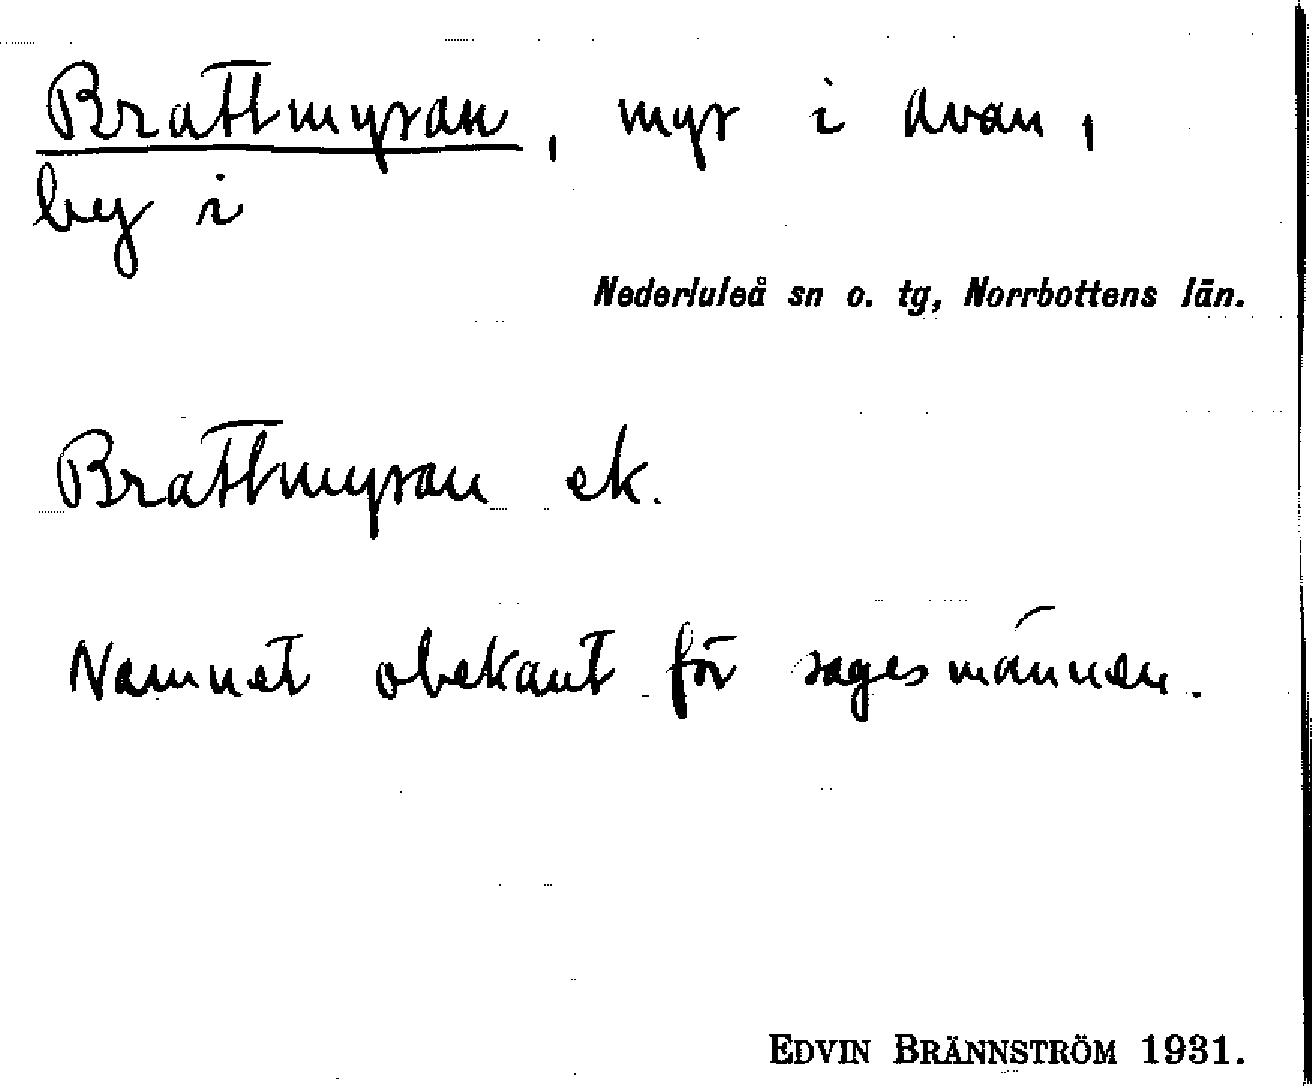 Brattmyran, myr i Avan,
by i
Nederluleå sn o. tg, Norrbottens län.
Brattmyran ek.
Namnet obekant för sagesmännen.
EDVIN BRÄNNSTRÖM 1931.